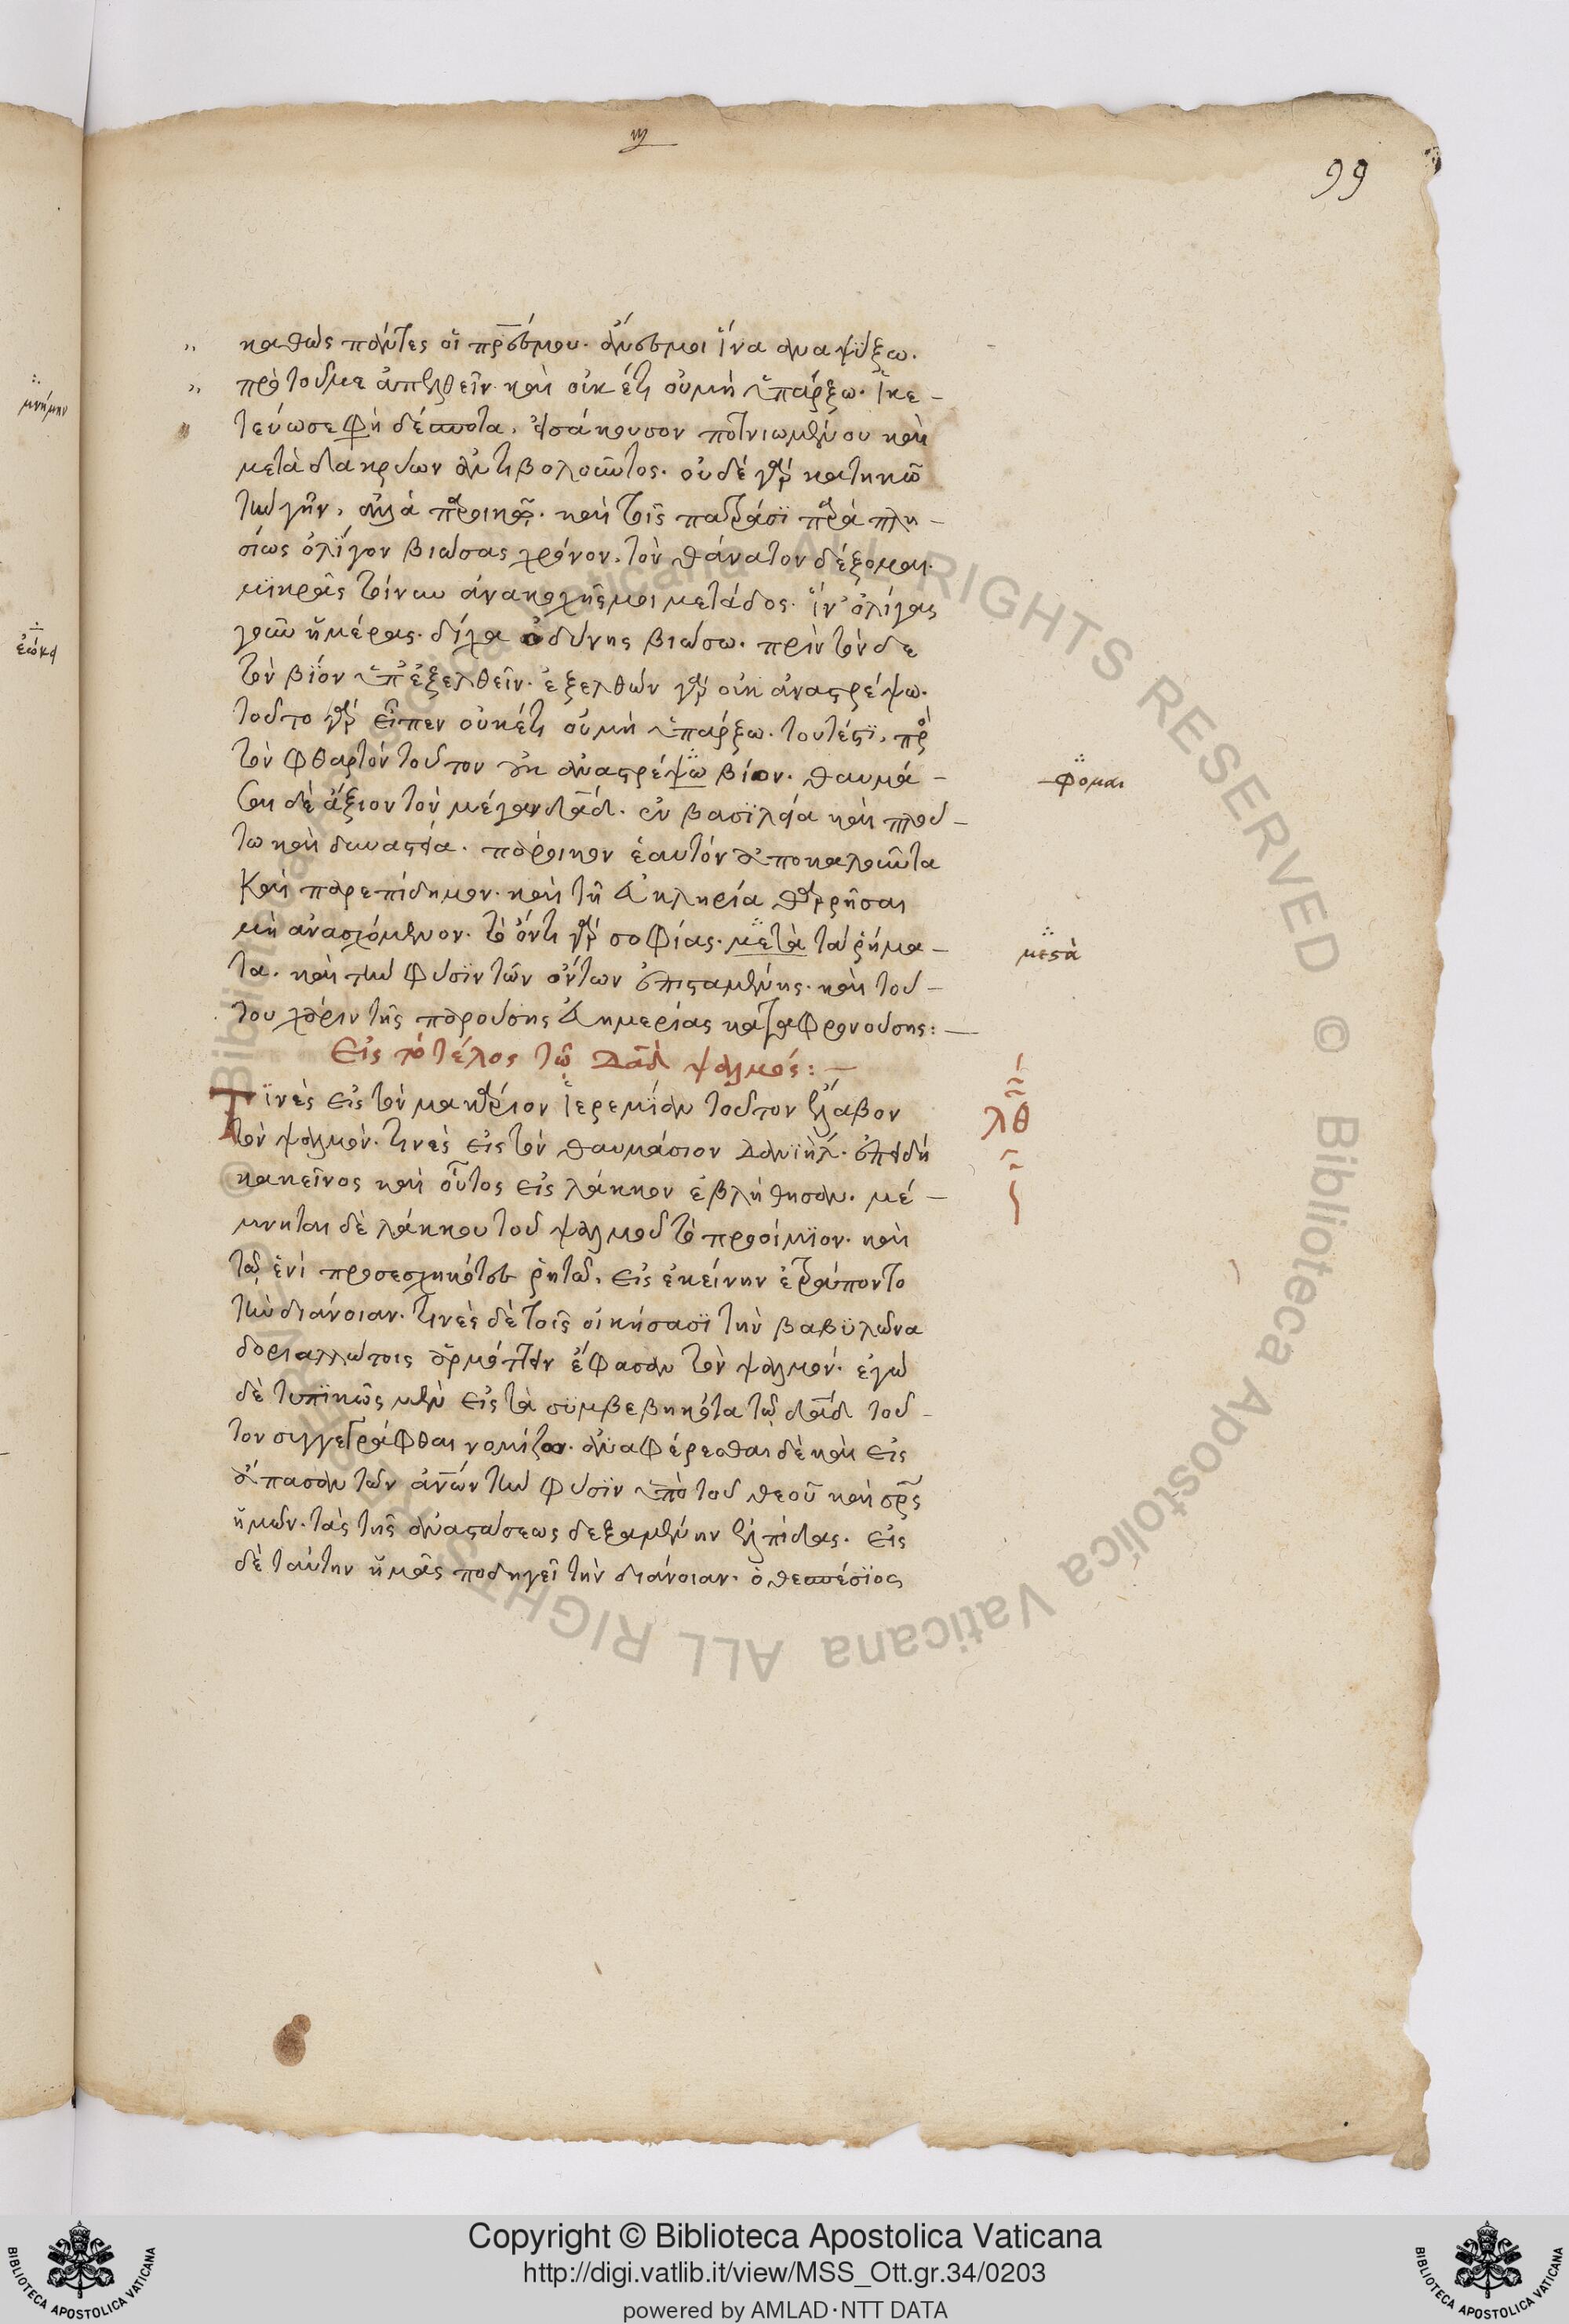 99
καθὼς πάντες οἱ πρ̅ές μου. ἄνες μοι ἵνα ἀναψύξω.
πρὸ τοῦ με ἀπελθεῖν καὶ οὐκ έτι οὐ μὴ ὑπάρξω. ἱκε-
τεύω σε φὴ δέσποτα, εἰσάκουσον ποτνιωμένου καὶ
μετὰ δακρύων ἀντιβολοῦντος. οὐδὲ γὰρ κατοικῶ
τὴν γῆν, ἀλλὰ παροικῶ. καὶ τοῖς πατράσϊ παραπλη-
σίως ὀλίγον βιώσας χρόνον, τὸν θάνατον δέξομαι.
μϊκρᾶς τίνυν ἀνακωχῆς μοι μετάδος. ἵν' ὀλίγας
γοῦν ἡμέρας. δίχα ὀδύνης βιώσω. πρὶν τόνδε
τὸν βίον ὑπεξελθεῖν. ἐξελθὼν γὰρ οὐκ ἀναστρέψω.
τοῦτο γὰρ εἶπεν οὐκέτι οὐ μὴ ὑπάρξω. τουτέστϊ, πρὸς
τὸν φθαρτὸν τοῦτον οὐκ ἀναστρέψω βίον. θαυμά-
σαι δὲ ἄξιον τὸν μέγαν δα̅δ. ἐν βασϊλεία καὶ πλού-
τω καὶ δυναστεία. πάροικον ἑαυτὸν ἀποκαλοῦντα
Καὶ παρεπίδημον. καὶ τῆ εὐκληρία θαρρῆσαι
μὴ ἀνασχόμενον. τὸ ὄντι γὰρ σοφίας. μετὰ τὰ ῥήμα-
τα. καὶ τὴν φύσϊν τῶν ὄντων ἐπισταμένης. καὶ τού-
του χάριν τῆς παρούσης εὐημερίας καταφρονούσης:—
φομαι
μεστὰ
Εἰς τὸ τέλος τῶ Δα̅δ ψαλμός:—
λθ
Τϊνὲς εἰς τὸν μακάριον Ἱερεμίαν τοῦτον ἔλαβον
τὸν ψαλμόν. τινὲς εἰς τὸν θαυμάσιον Δανϊήλ. ἐπειδὴ
κακεῖνος καὶ οὗτος εἰς λάκκον ἐβλήθησαν. μέ-
μνηται δὲ λάκκου τοῦ ψαλμοῦ τὸ προοίμϊον. καὶ
τῶ ἑνὶ προσεσχηκότες ῥητῶ, εἰς ἐκείνην ἐτράποντο
τὴν διάνοιαν. τινὲς δὲ τοῖς οἰκήσασϊ τὴν βαβϋλῶνα
δοριαλώτοις ἁρμόττειν ἔφασαν τὸν ψαλμόν. ἐγὼ
δὲ τυπϊκῶς μὲν εἰς τὰ σϋμβεβηκότα τῶ δα̅δ τοῦ-
τον συγγεγράφθαι νομίζω. ἀναφέρεσθαι δὲ καὶ εἰς
ἅπασαν τῶν ἀν̅ων τὴν φύσϊν ὑπὸ τοῦ θεοῦ καὶ σρ̅ς
ἡμῶν. τὰς τῆς ἀναστάσεως δεξαμένην ἐλπίδας. εἰς
δὲ ταύτην ἡμᾶς ποδηγεῖ τὴν διάνοιαν. ὁ θεσπέσϊος
μνήμην
Copyright © Biblioteca Apostolica Vaticana
http://digi.vatlib.it/view/MSS_Ott.gr.34/0203
powered by AMLAD·NTT DATA
BIBLIOTECA APOSTOLICA VATICANA
BIBLIOTECA APOSTOLICA VATICANA
© Biblioteca Apostolica Vaticana ALL RIGHTS RESERVED © Biblioteca Apostolica Vaticana ALL RIGHTS RESERVED